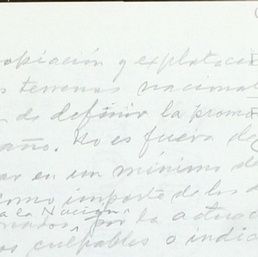 opiación y explotació
s terrenos nacional
n de definir la promo
año. No es fuera de
ar en un mínimo de
como importe de los d
a la Nación
nados por la actuac
os culpables o indic